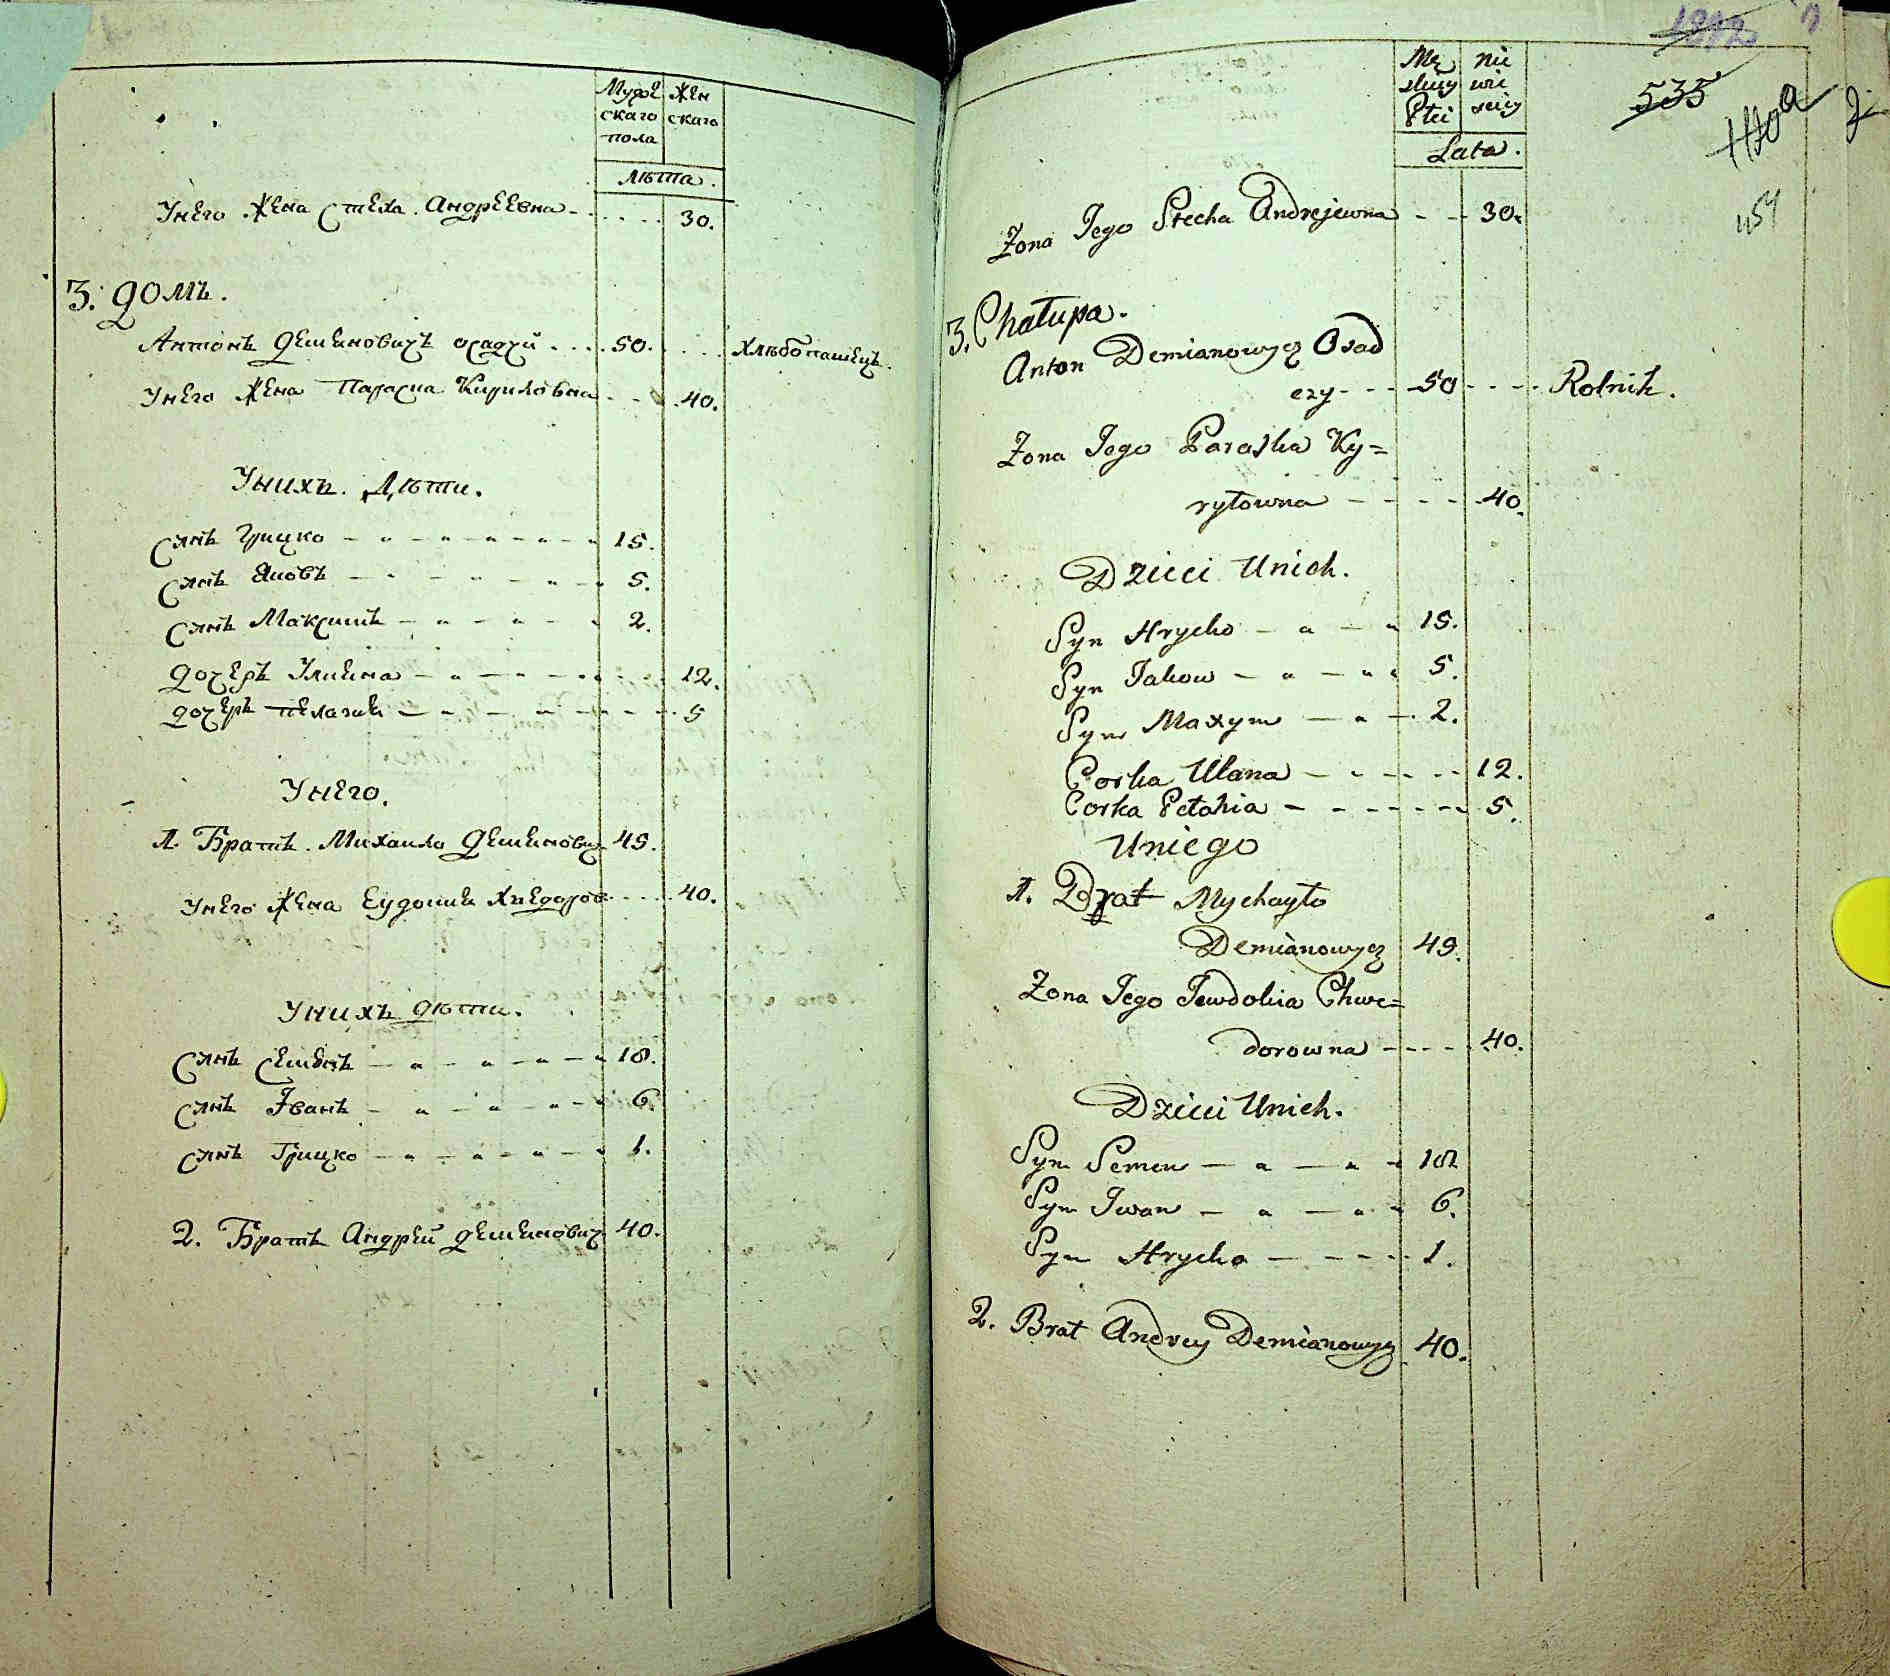 Мужескаго пола Женскаго
Лѣта.
У него Жена Стеха Андреевна 30.
3. Домъ.
Антонъ Демяновичъ осадчій 50. Хлѣбопашецъ.
У него Жена Параска Кириловна 40.
У нихъ Дѣти.
Сынъ Грицко 15.
Сынъ Яковъ 5.
Сынъ Максимъ 2.
Дочерь Улияна 12.
Дочерь Пелагия 5
У него.
1. Братъ Михайло Демянович 45.
У него Жена Еудокия Хведоров 40.
У нихъ дѣти.
Сынъ Семенъ 18.
Сынъ Іванъ 6.
Сынъ Грицко 1.
2. Братъ Андрей Демянович 40.
1872
535
454
Męskiey Płci niewieściey
Lata.
Żona Jego Stecha Andrejewna 30.
3. Chałupa.
Anton Demianowycz Osad
czy 50 Rolnik.
Żona Jego Paraska Ky=
ryłowna 40.
Dzieci Unich.
Syn Hrycko 15.
Syn Jakow 5.
Syn Maxym 2.
Corka Ulana 12.
Corka Pełahia 5.
Uniego
1. Brat Mychayło
Demianowycz 45.
Żona Jego Jewdokia Chwe=
dorowna 40.
Dzieci Unich.
Syn Semen 18
Syn Iwan 6.
Syn Hrycko 1.
2. Brat Andrey Demianowycz 40.